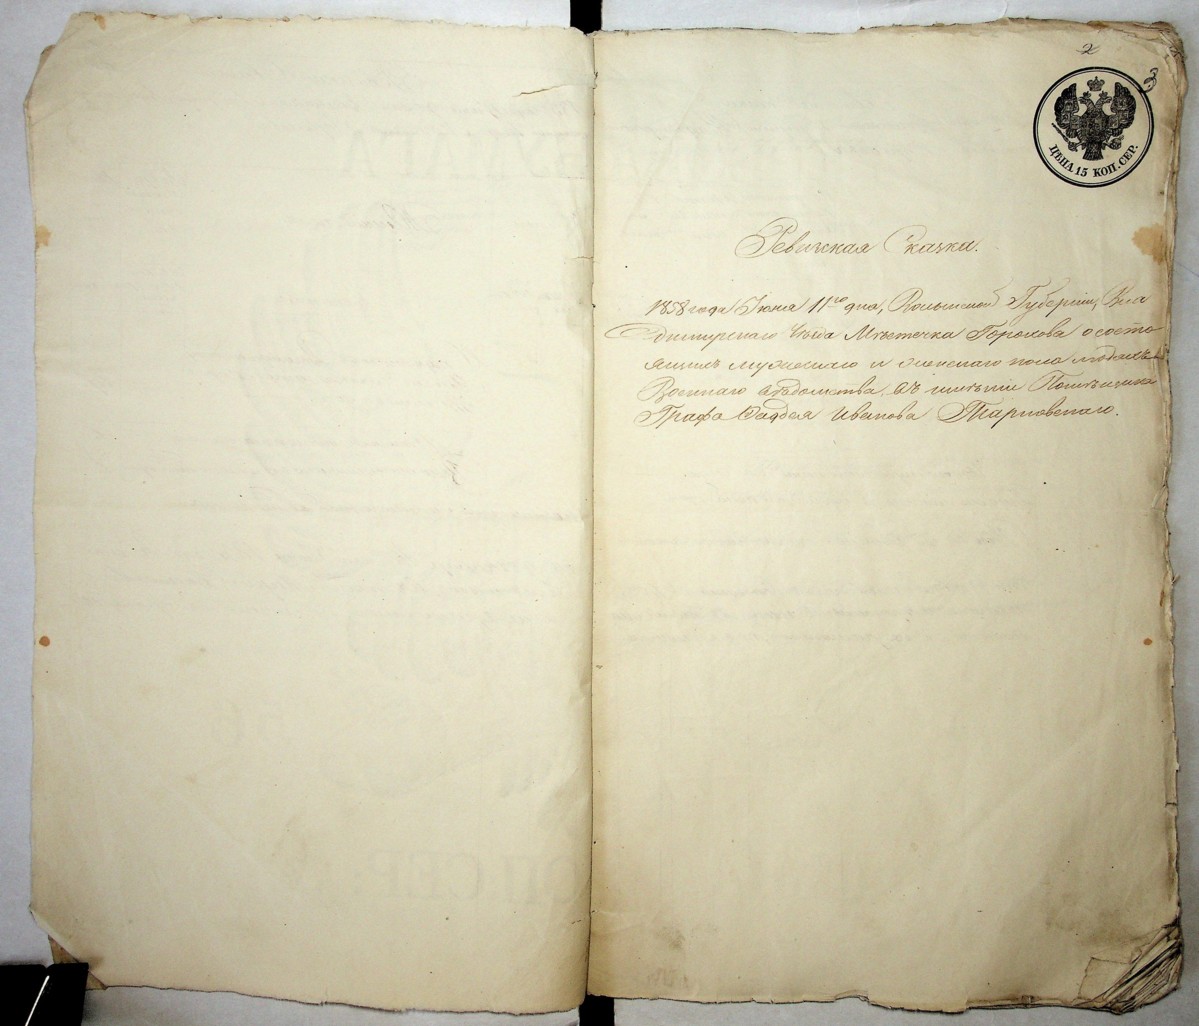 2
3
ЦѢНА 15 КОП. СЕР.
Ревизская Сказка.
1858 года Июня 11го дня, Волынской Губерніи, Вла
димирскаго Уѣзда Мѣстечка Горохова о состо
ящихъ мужескаго и женскаго пола людяхъ
Военнаго вѣдомства, въ имѣніи Помѣщика
Графа Фаддея Иванова Тарновскаго.